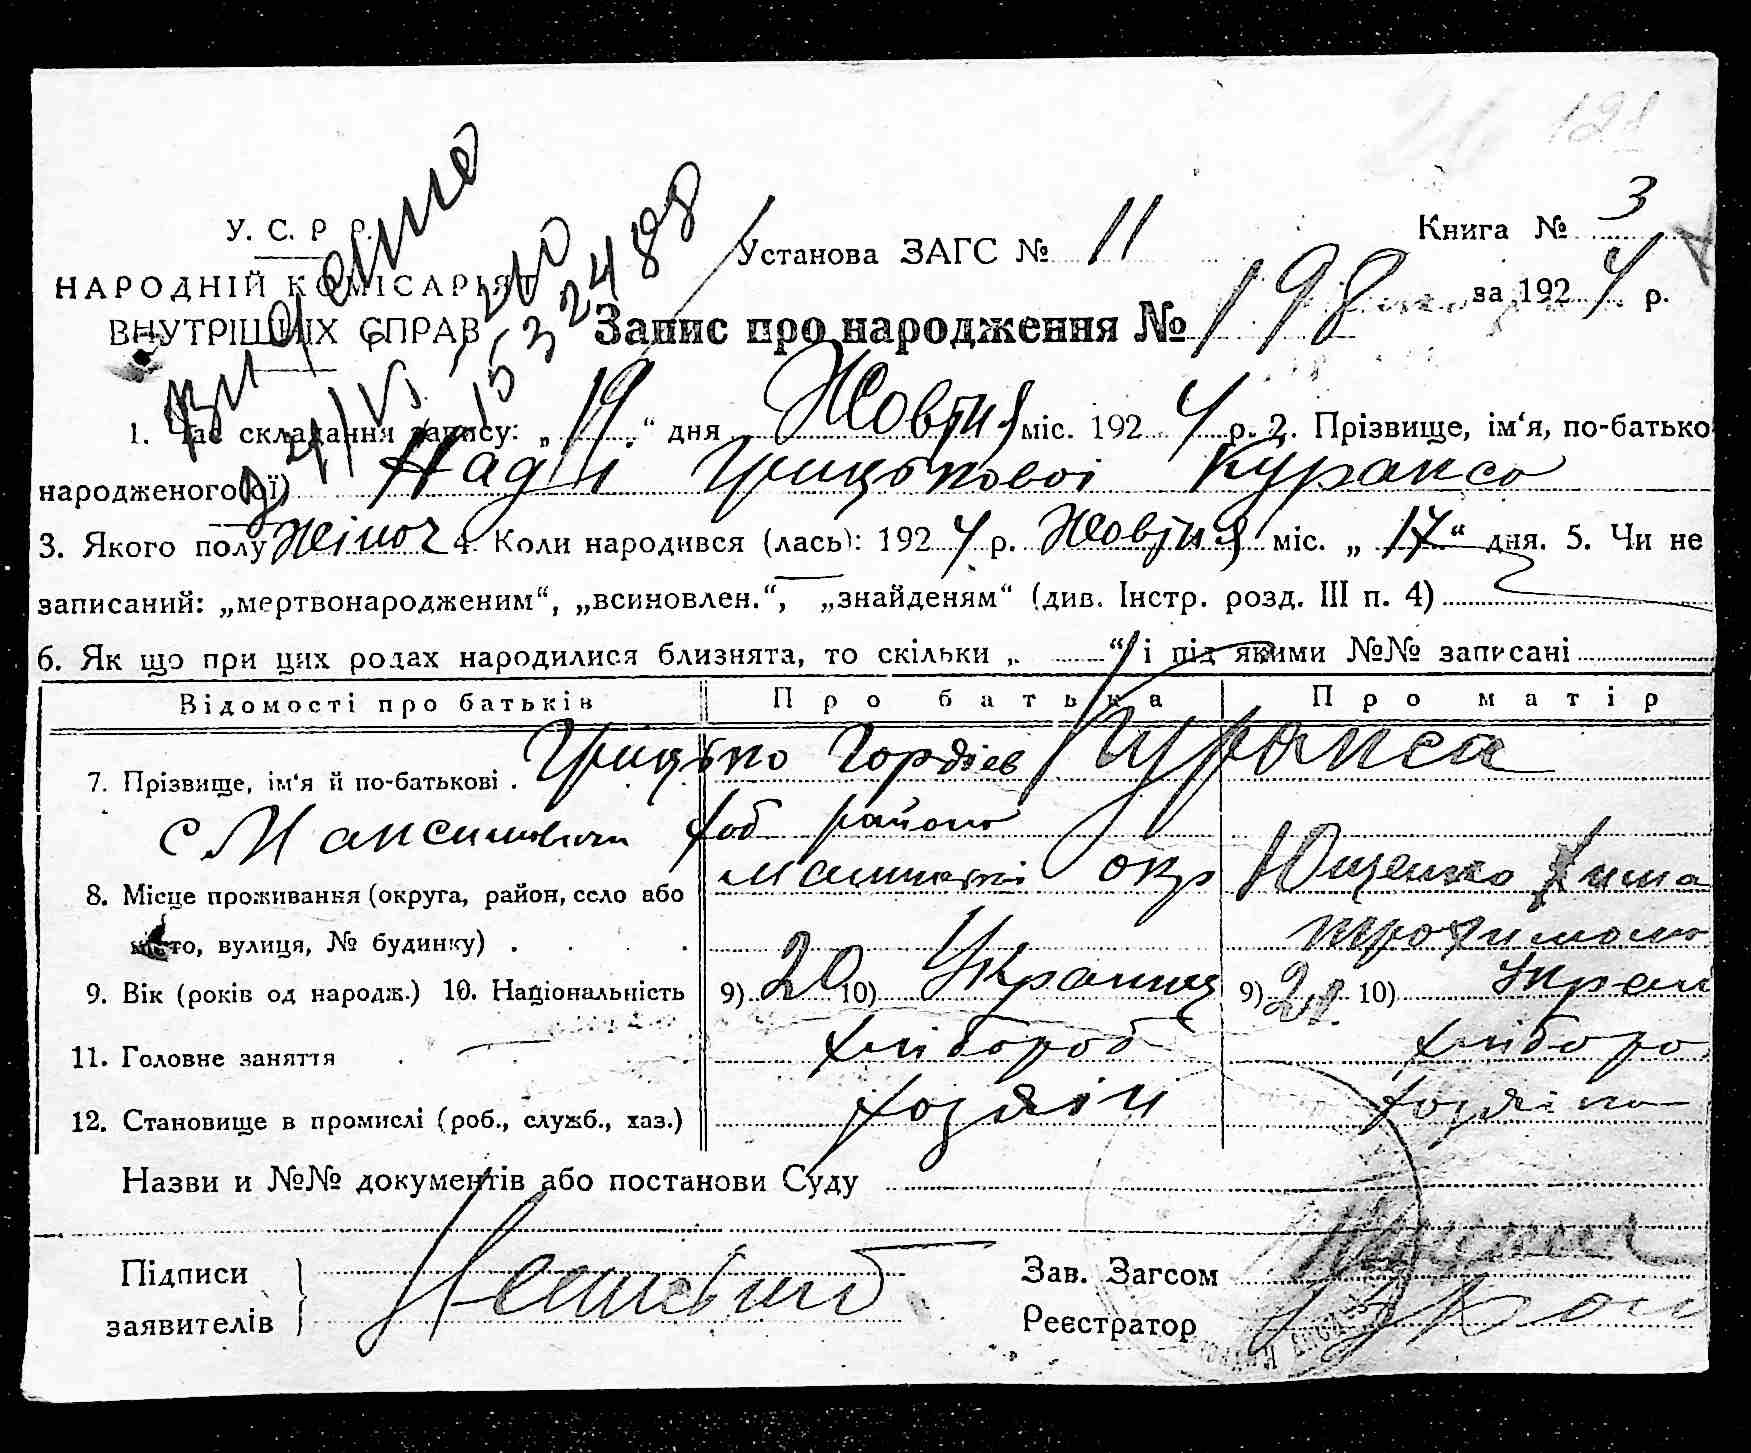 121
У. С. Р Р.
НАРОДНІЙ КОМІСАРІЯТ
ВНУТРІШНІХ СПРАВ
Установа ЗАГС № 11
Книга № 3
за 1924 р.
Запис про народження № 198
1. Час складання запису: „19“ дня Жовтня міс. 1924 р. 2. Прізвище, ім‘я, по-батькові
народженого(ої) Надії Грицькової Куранса
3. Якого полу жіноч 4. Коли народився (лась): 1924 р. Жовтня міс. „17“ дня. 5. Чи не
записаний: „мертвонародженим“, „всиновлен.“, „знайденям“ (див. Інстр. розд. III п. 4)
6. Як що при цих родах народилися близнята, то скільки „ “ і під якими №№ записані
Відомості про батьків Про батька Про матір
7. Прізвище, ім‘я й по-батькові . Грицько Гордієв Куранса
с район
8. Місце проживання (округа, район, село або окр Ющенко
місто, вулиця, № будинку) . . . .
9. Вік (років од народж.) 10. Національність 9) 20 10) Українец 9) 21 10) Украй
11. Головне заняття . хлібороб хліборо
12. Становище в промислі (роб., служб., хаз.) хозяін хозяіка
Назви и №№ документів або постанови Суду
Підписи
заявителів
Зав. Загсом
Реєстратор